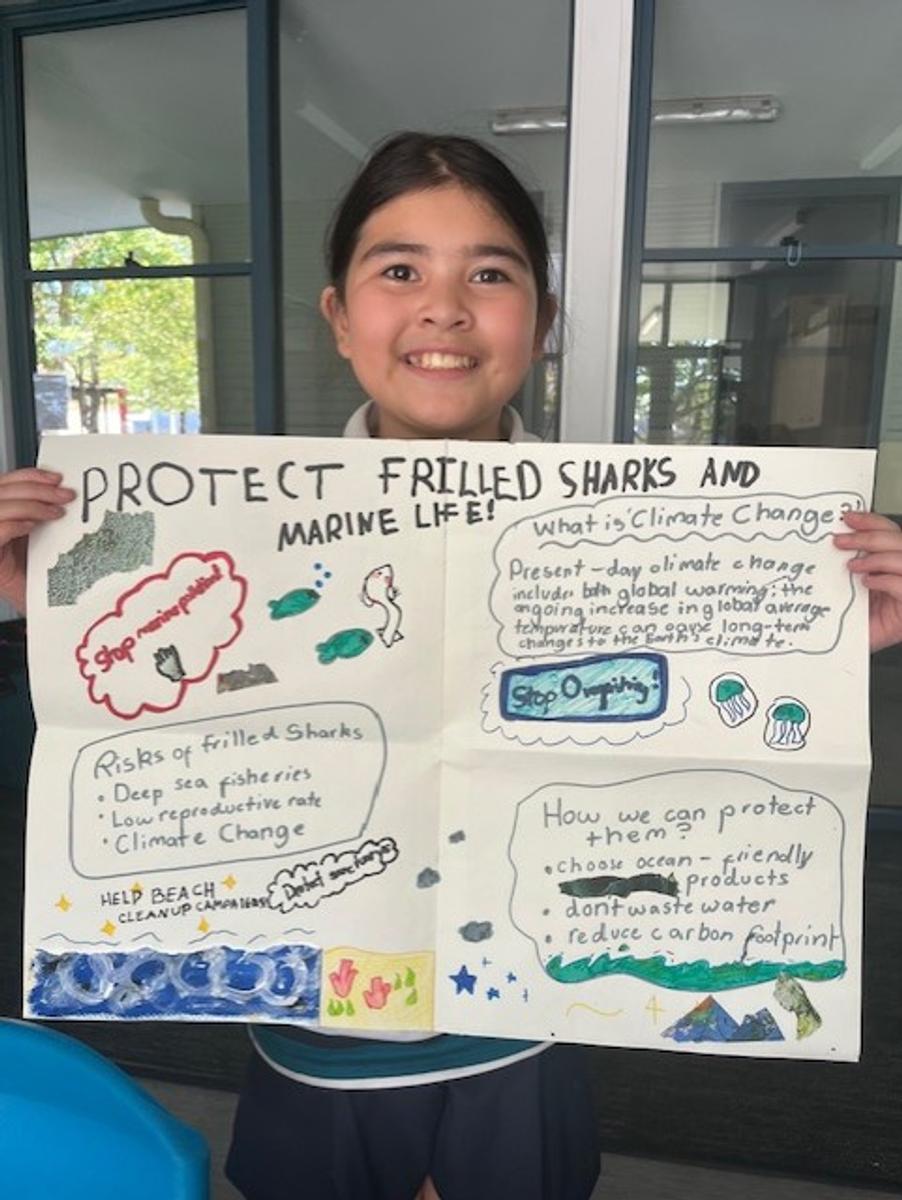 PROTECT FRILLED SHARKS AND
MARINE LIFE!
Stop marine pollution!
What is Climate Change?
Present-day climate change
includes both global warming; the
ongoing increase in global average
temperature can cause long-term
changes to the Earth's climate.
Stop Overfishing!
Risks of frilled Sharks
• Deep sea fisheries
• Low reproductive rate
• Climate Change
HELP BEACH
CLEANUP CAMPAIGNS!
How we can protect
them?
• choose ocean-friendly
products
• dont waste water
• reduce carbon footprint